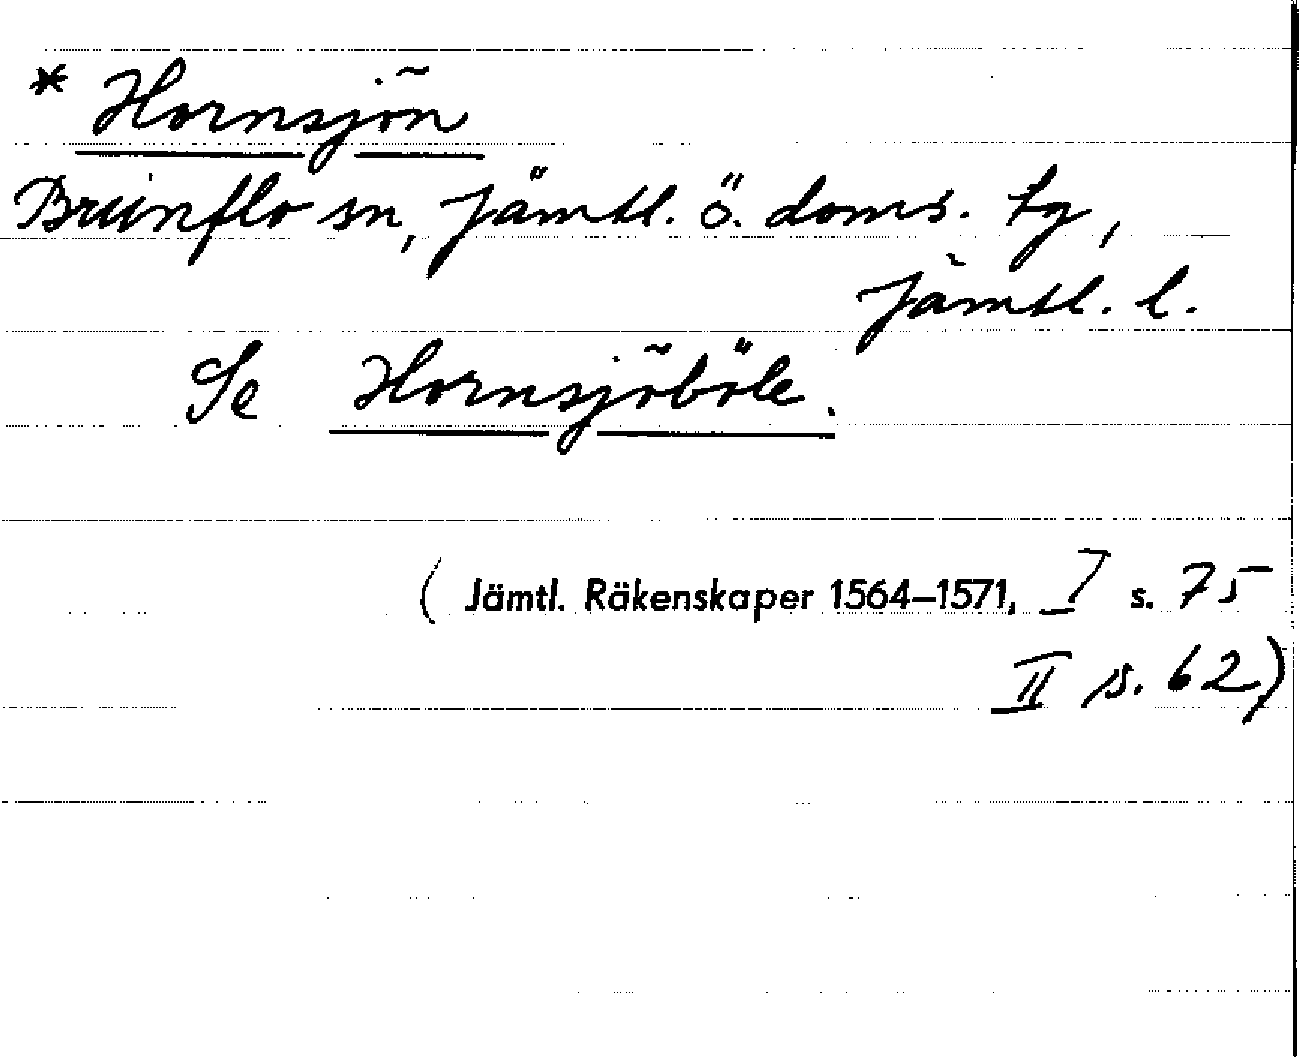 * Hornsjön
Brunflo sn, Jämtl. ö. doms. tg,
Jämtl. l.
Se Hornsjöböle.
( Jämtl. Räkenskaper 1564–1571, I s. 75
II s. 62)